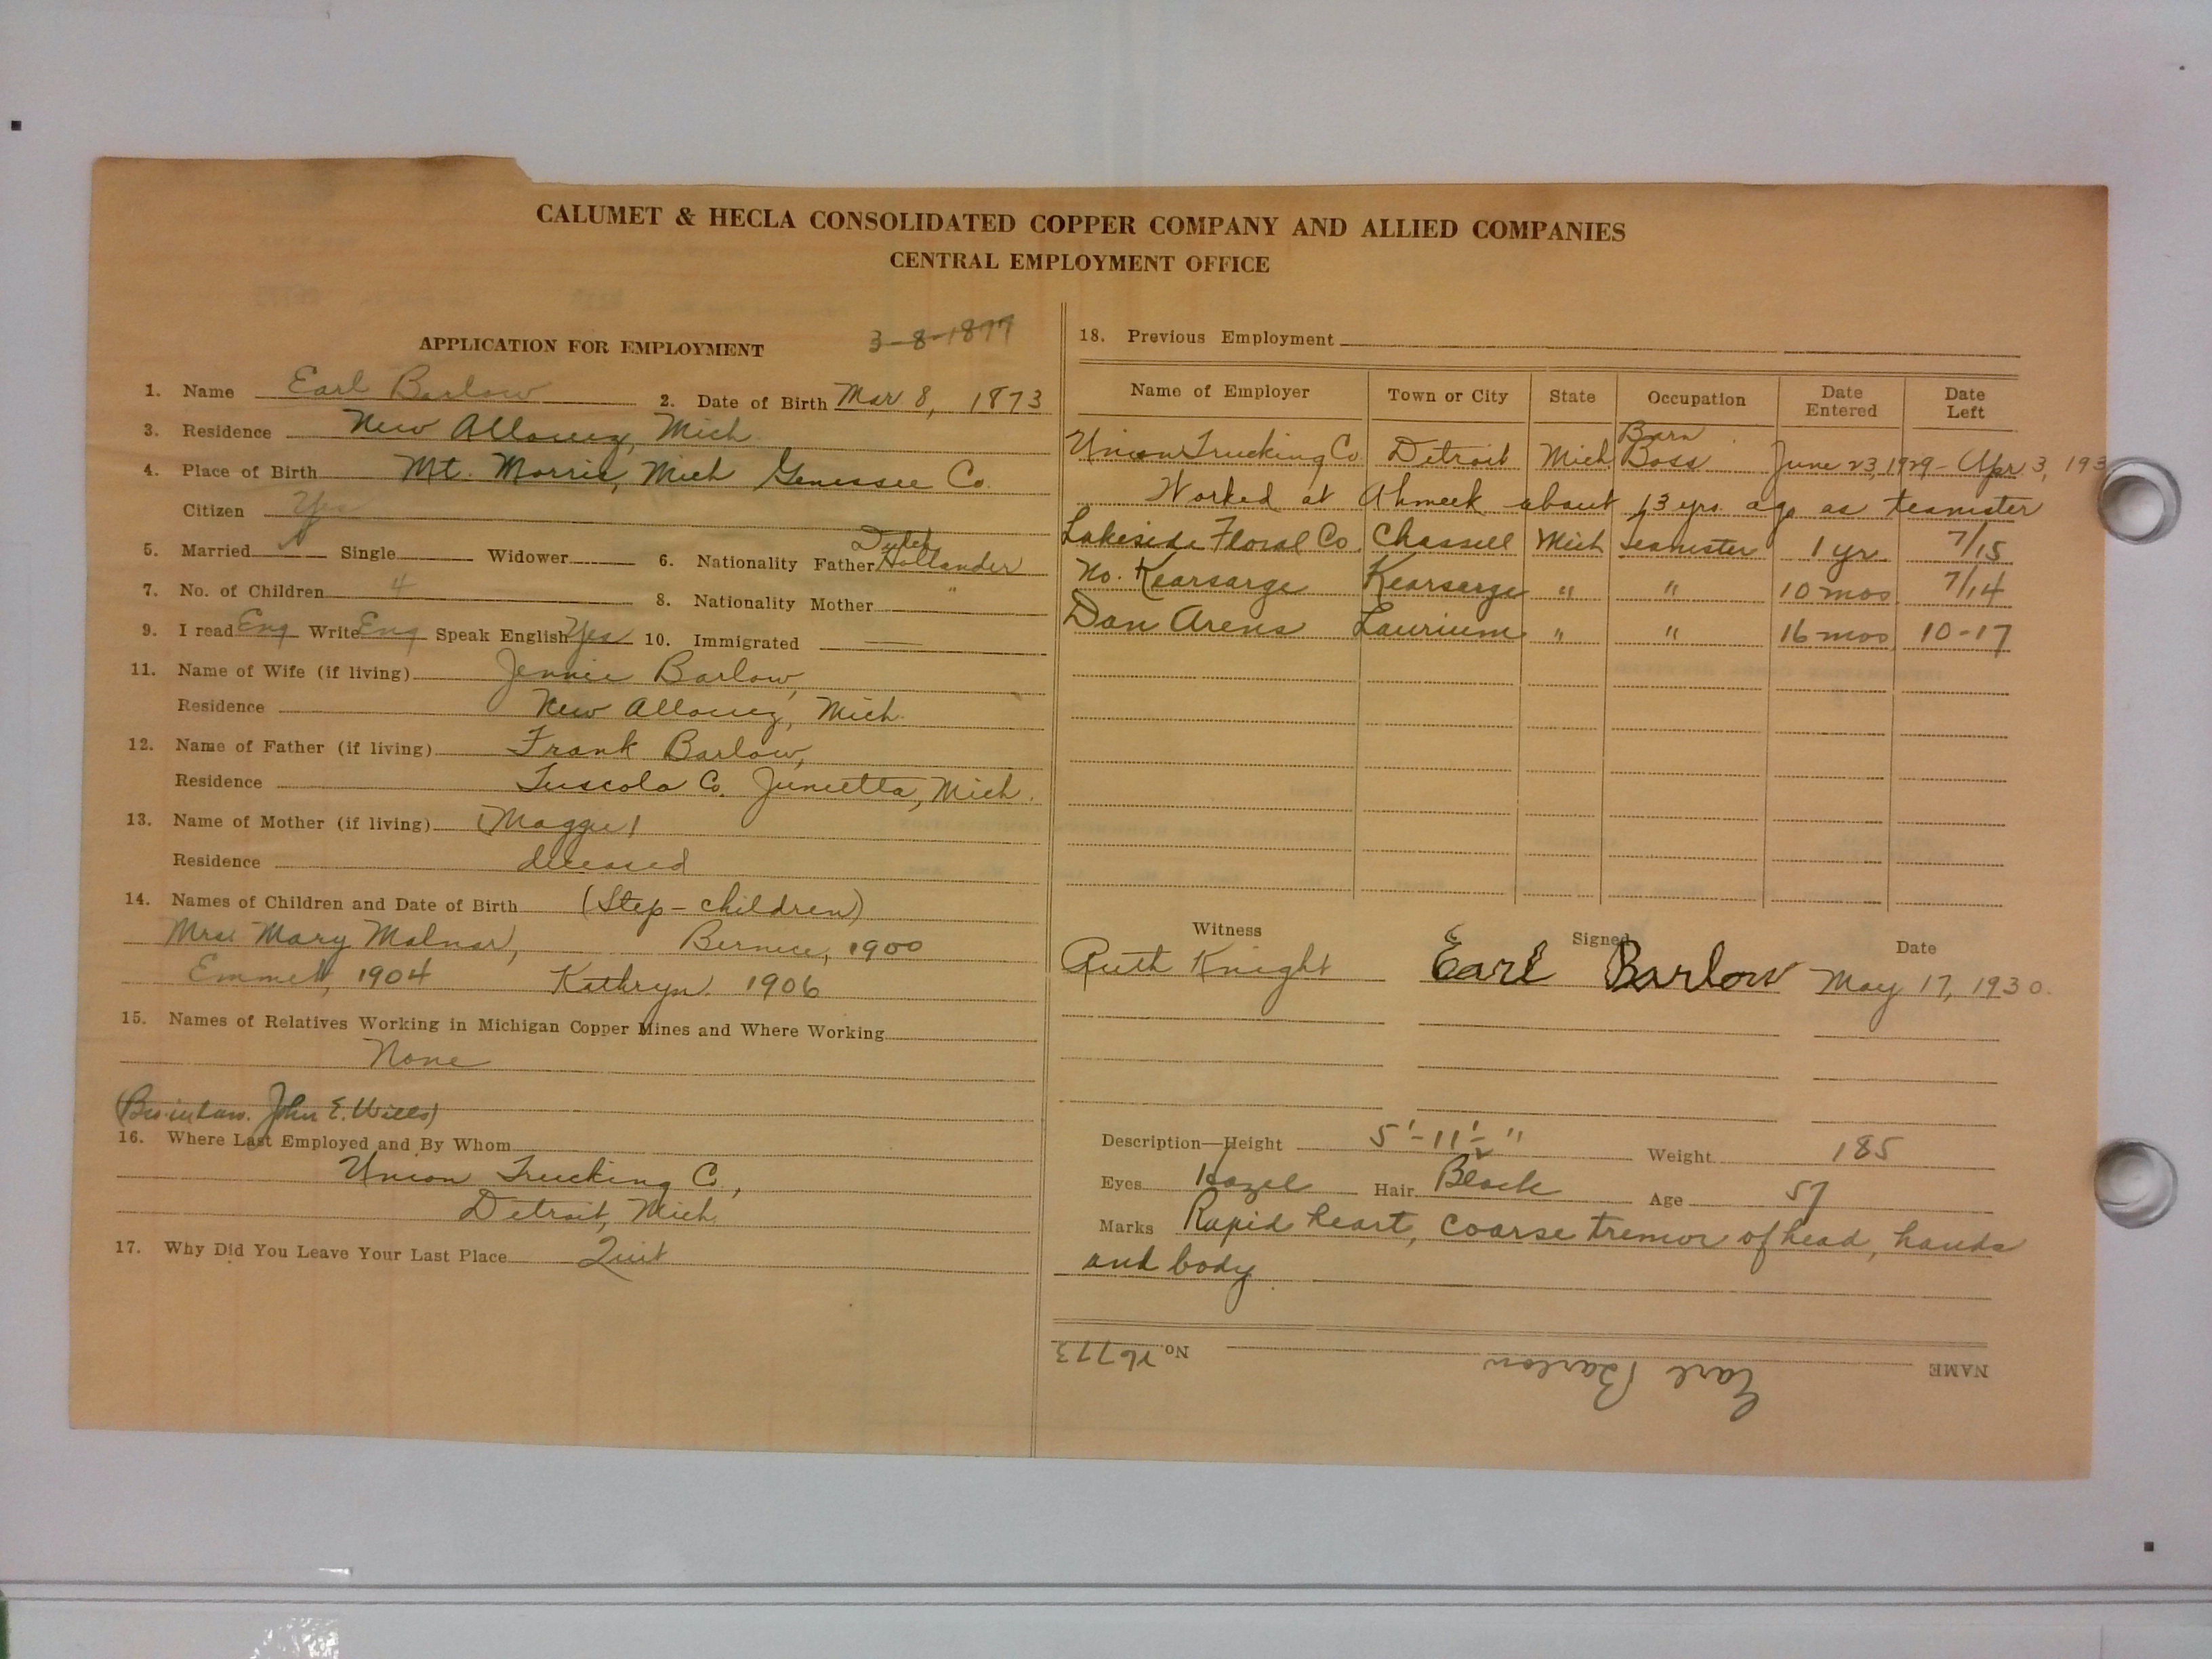 CALUMET & HECLA CONSOLIDATED COPPER COMPANY AND ALLIED COMPANIES
CENTRAL EMPLOYMENT OFFICE
APPLICATION FOR EMPLOYMENT 3-8-1877
1. Name Earl Barlow 2. Date of Birth Mar 8, 1873
3. Residence New Allouez, Mich.
4. Place of Birth Mt. Morris, Mich Genessee Co.
Citizen Yes
5. Married Single Widower 6. Nationality Father Dutch Hollander
7. No. of Children 4 8. Nationality Mother "
9. I read Eng Write Eng Speak English Yes 10. Immigrated
11. Name of Wife (if living) Jennie Barlow,
Residence New Allouez, Mich.
12. Name of Father (if living) Frank Barlow,
Residence Tuscola Co. Junietta, Mich.
13. Name of Mother (if living) (Maggie)
Residence deceased
14. Names of Children and Date of Birth (Step-children)
Mrs. Mary Malnar, Bernice, 1900
Emmett, 1904 Kathryn. 1906
15. Names of Relatives Working in Michigan Copper Mines and Where Working
None
(Bro-in-law. John E. Wills)
16. Where Last Employed and By Whom
Union Trucking Co.,
Detroit, Mich.
17. Why Did You Leave Your Last Place Quit
18. Previous Employment
Name of Employer Town or City State Occupation Date Entered Date Left
Union Trucking Co. Detroit Mich. Barn Boss June 23, 1929 - Apr 3, 193
Worked at Ahmeek about 13 yrs. ago as teamster
Lakeside Floral Co. Chassell Mich teamster 1 yr. 7/15
No. Kearsarge Kearsarge " " 10 mos. 7/14
Dan Arens Laurium " " 16 mos 10-17
Witness Signed Date
Ruth Knight Earl Barlow May 17, 1930.
Description—Height 5'-11½" Weight 185
Eyes Hazel Hair Black Age 57
Marks Rapid heart, coarse tremor of head, hands
and body.
NAME Earl Barlow No.